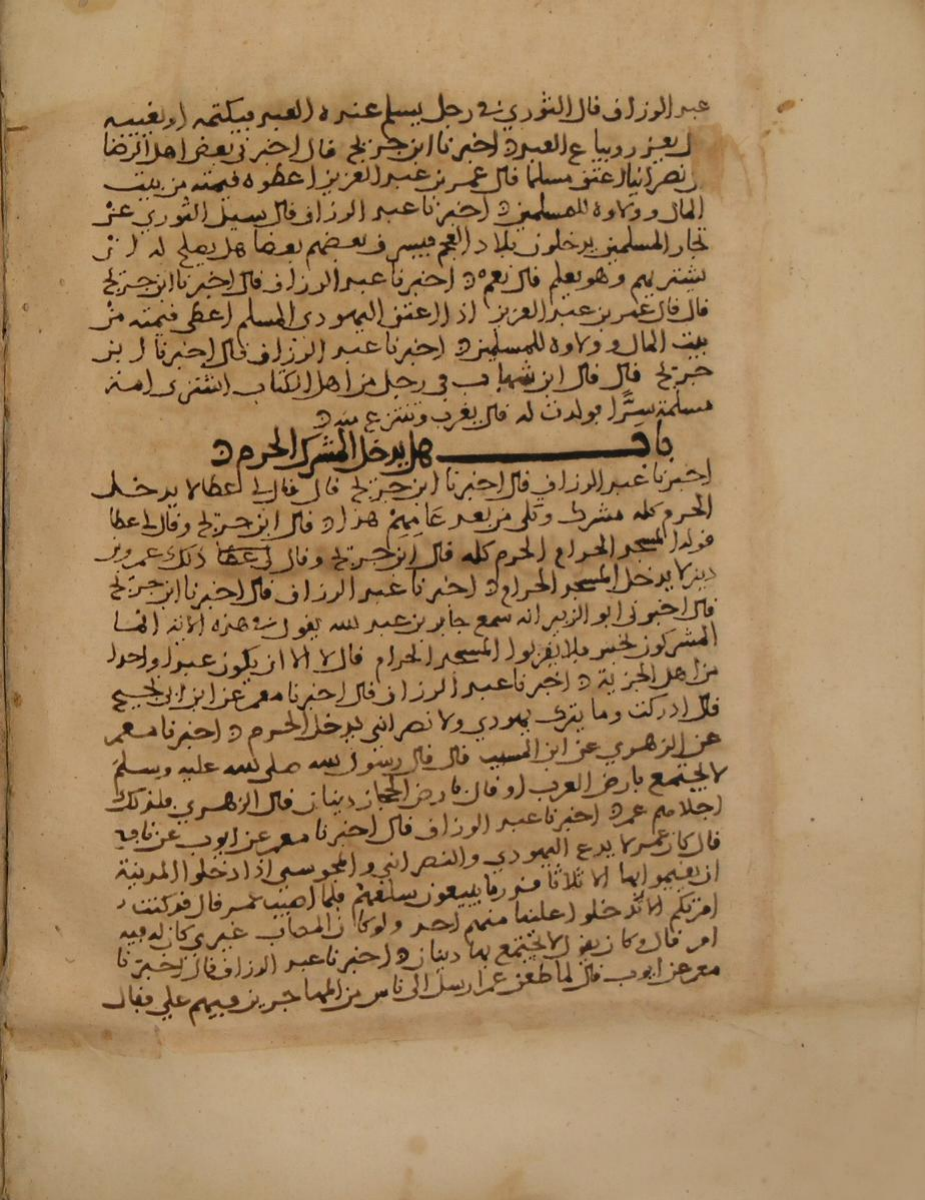 عبد الرزاق قال الثوري في رجل يسلم عنده العبد فيكتمه او يغيبه
قال يعزر ويباع العبد ٥ اخبرنا ابن جريج قال اخبرني بعض اهل الرضا
ان نصرانيا اعتق مسلما قال عمر بن عبد العزيز اعطوه قيمته من بيت
المال وولاوه للمسلمين ٥ اخبرنا عبد الرزاق قال سيل الثوري عن
تجار المسلمين يدخلون بلاد العجم فيسرق بعضهم بعضا هل يصلح له ان
يشتريهم وهو يعلم قال نعم ٥ اخبرنا عبد الرزاق قال اخبرنا ابن جريج
قال قال عمر بن عبد العزيز اذا اعتق اليهودي المسلم اعطي قيمته من
بيت المال وولاوه للمسلمين ٥ اخبرنا عبد الرزاق قال اخبرنا ابن
جريج قال قال ابن شهاب في رجل من اهل الكتاب اشترى امة
مسلمة سرا فولدت له قال يغرب وتنتزع منه ٥
باب هل يدخل المشرك الحرم ٥
اخبرنا عبد الرزاق قال اخبرنا ابن جريج قال قال لي عطا لا يدخل
الحرم كله مشرك وتلى من بعد عامهم هذا ٥ قال ابن جريج وقال لي عطا
قوله المسجد الحرام الحرم كله قال ابن جريج وقال لي عطا ذلك عمرو بن
دينر لا يدخل المسجد الحرام ٥ اخبرنا عبد الرزاق قال اخبرنا ابن جريج
قال اخبرني ابو الزبير انه سمع جابر بن عبد الله يقول في هذه الاية انما
المشركون نجس فلا يقربوا المسجد الحرام قال لا الا ان يكون عبدا او احدا
من اهل الجزية ٥ اخبرنا عبد الرزاق قال اخبرنا معمر عن ابن ابي نجيح
قال ادركت وما يترك يهودي ولا نصراني يدخل الحرم ٥ اخبرنا معمر
عن الزهري عن ابن المسيب قال قال رسول الله صلى الله عليه وسلم
لا يجتمع بارض العرب او قال بارض الحجاز دينان قال الزهري فلذلك
اجلاهم عمر ٥ اخبرنا عبد الرزاق قال اخبرنا معمر عن ايوب عن نافع
قال كان عمر لا يدع اليهودي والنصراني والمجوسي اذا دخلوا المدينة
ان يقيموا بها الا ثلاثا قدر ما يبيعون سلعتهم فلما اصيب عمر قال قد كنت
امرتكم الا تدخلوا علينا منهم احد ولو كان المصاب غيري كان له فيه
امر قال وكان يقول لا يجتمع بها دينان ٥ اخبرنا عبد الرزاق قال اخبرنا
معمر عن ايوب قال لما طعن عمر ارسل الى ناس من المهاجرين فيهم علي فقال